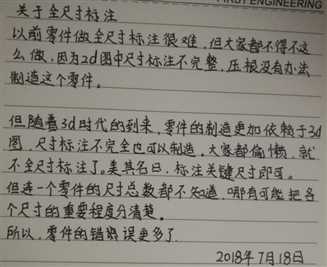 FIRST ENGINEERING
关于全尺寸标注
以前零件做全尺寸标注很难，但大家都不得不这
么做，因为2d图中尺寸标注不完整，压根没有办法
制造这个零件。
但随着3d时代的到来，零件的制造更加依赖于3d
图，尺寸标注不完全也可以制造，大家都偷懒，就
不全尺寸标注了。美其名曰，标注关键尺寸即可。
但连一个零件的尺寸总数都不知道，哪有可能把各
个尺寸的重要程度分清楚。
所以，零件的错误更多了
2018年7月18日